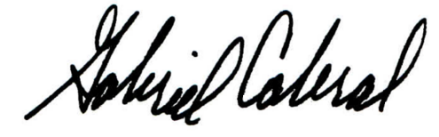 Gabriel Cabral